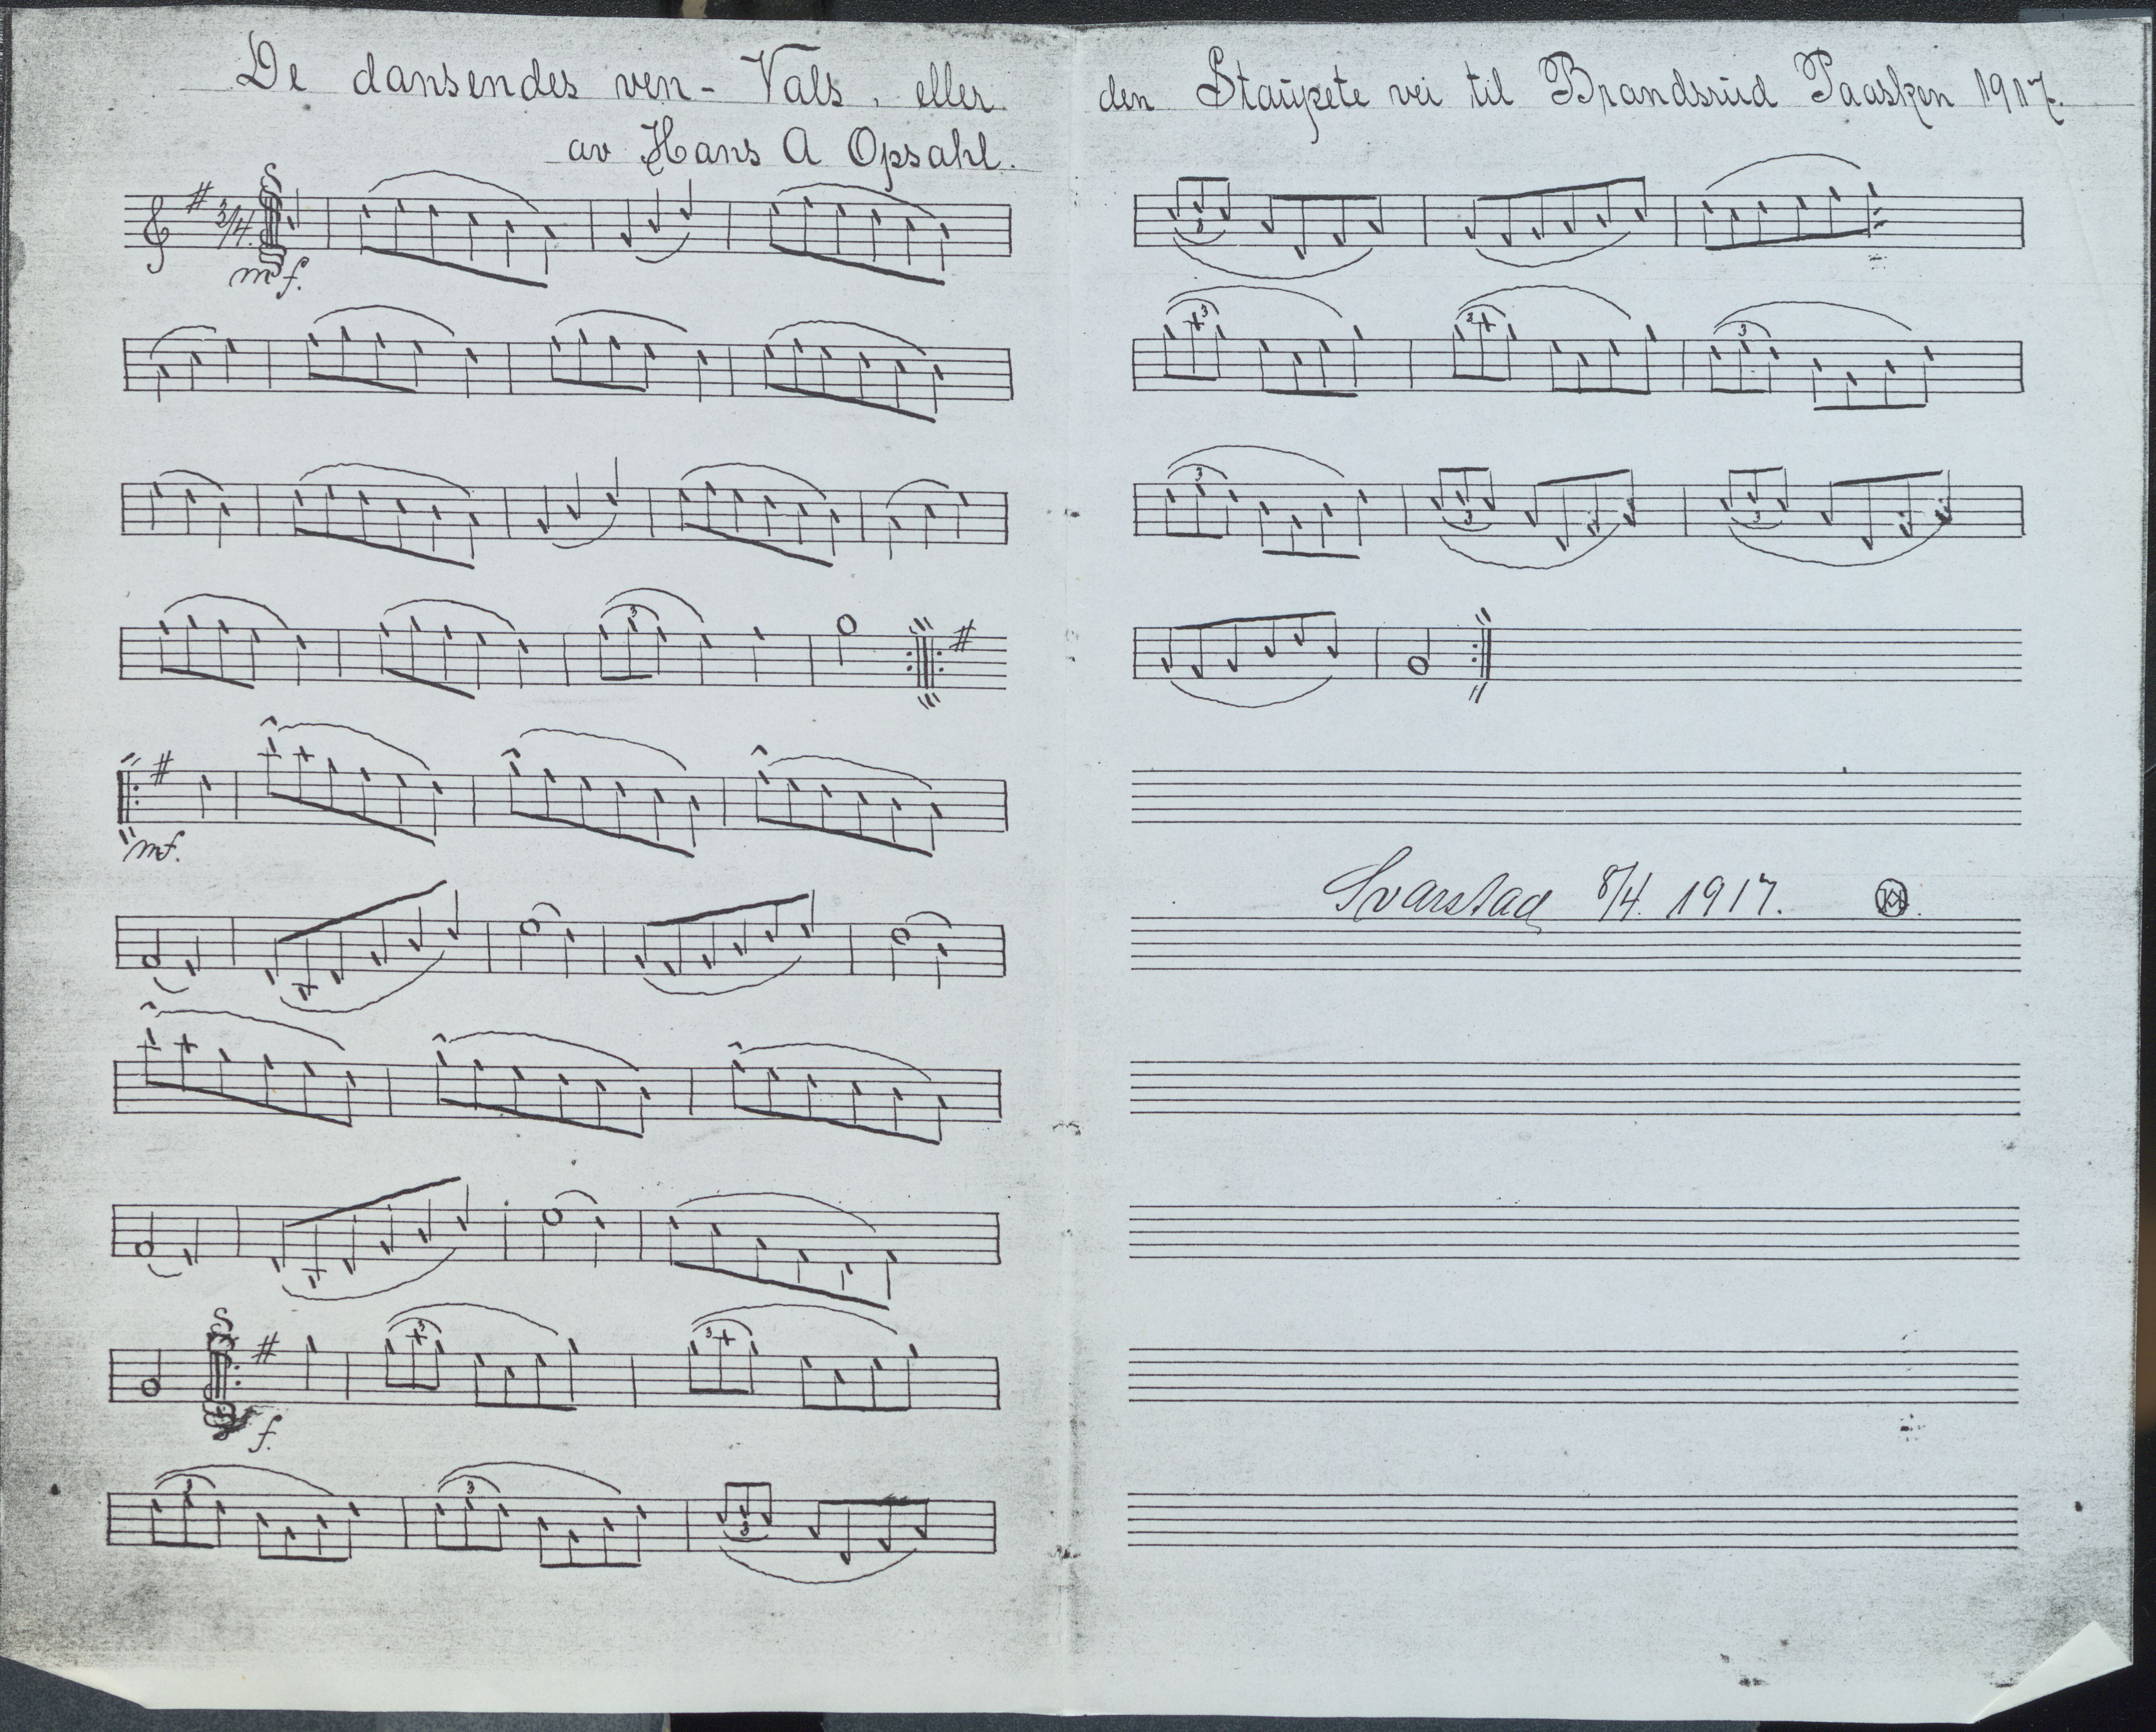 De dansendes ven - Vals. eller den Staupete vei til Brandsrud Paasken 1917.
av Hans A Opsahl.
3/4.
mf.
3
3
3
3
3
3
3
3
mf.
Svarstad 8/4. 1917.
3
3
f.
3
3
3